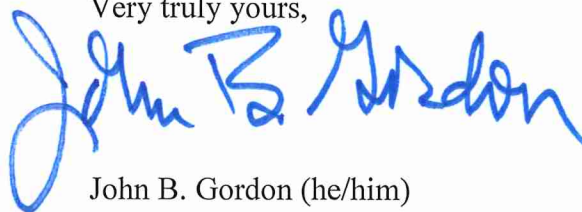 Very truly yours,
John B. Gordon
John B. Gordon (he/him)